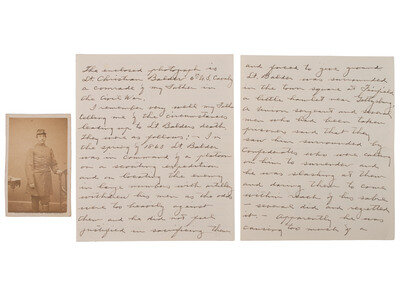 The enclosed photograph is
Lt. Christian Balder 6th U.S. Cavalry
a comrade of my Father in
the Civil War.
I remember very well my Father
telling me of the circumstances
leading up to Lt Balders death.
They were as follows: - In
the spring of 1863 Lt Balder
was in command of a platoon
on a scouting expedition
and on locating the enemy
in large numbers with artillery
withdrew his men as the odds
were too heavily against
them and he did not feel
justified in sacrificing them
and forced to give ground
Lt. Balder was surrounded
in the town square at Fairfield,
a little hamlet near Gettysburg.
A Union sergeant and several
men who had been taken
prisoner said that they
saw him surrounded by
Confederates who were calling
on him to surrender and
he was slashing at them
and daring them to come
within reach of his sabre
- several did and regretted
it - Apparently he was
causing too much of a